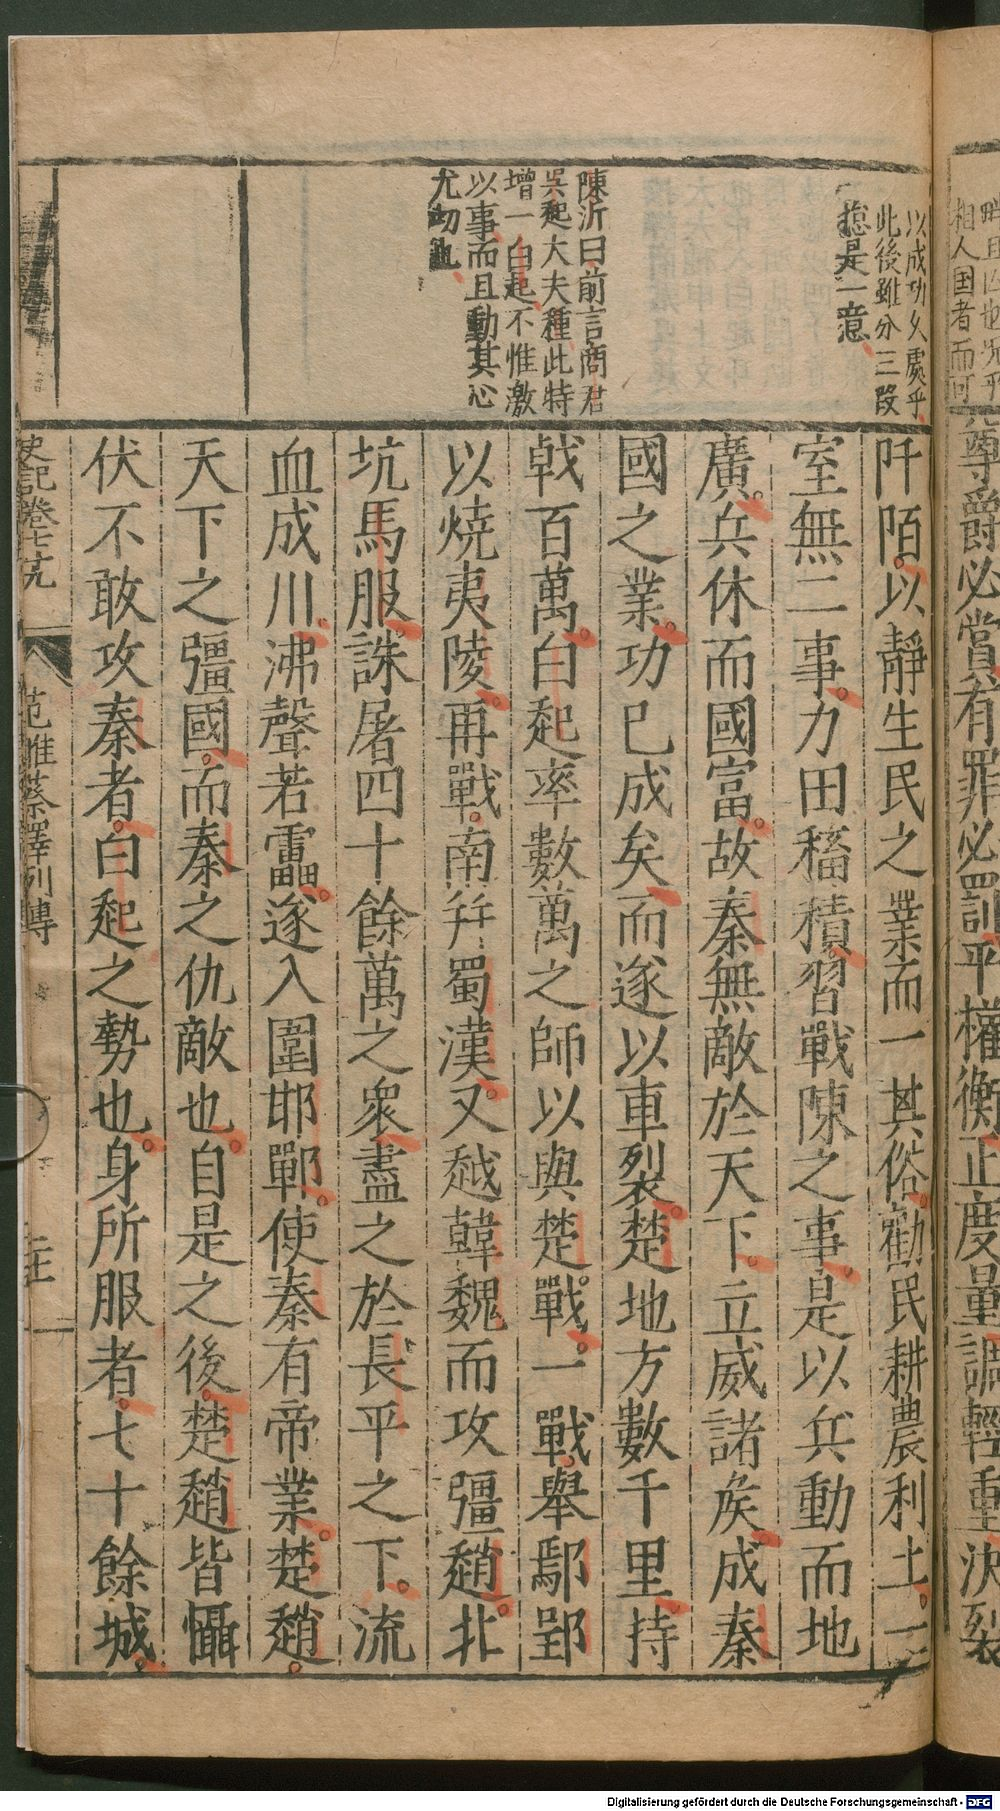 相人国者而可
尊爵必賞有罪必罰平權衡正度量調輕重決裂
以成功久處乎
此後雖分三段
揔是一意
陳沂曰前言商君
吳起大夫種此特
增一白起不惟激
以事而且動其心
尤切也
阡陌以靜生民之業而一其俗勸民耕農利土一
室無二事力田稸積習戰陳之事是以兵動而地
廣兵休而國富故秦無敵於天下立威諸矦成秦
國之業功已成矣而遂以車裂楚地方數千里持
戟百萬白起率數萬之師以與楚戰一戰舉鄢郢
以燒夷陵再戰南并蜀漢又越韓魏而攻彊趙北
坑馬服誅屠四十餘萬之衆盡之於長平之下流
血成川沸聲若靁遂入圍邯鄲使秦有帝業楚趙
天下之彊國而秦之仇敵也自是之後楚趙皆懾
伏不敢攻秦者白起之勢也身所服者七十餘城
史記卷七九 范雎蔡澤列傳
Digitalisierung gefördert durch die Deutsche Forschungsgemeinschaft - DFG